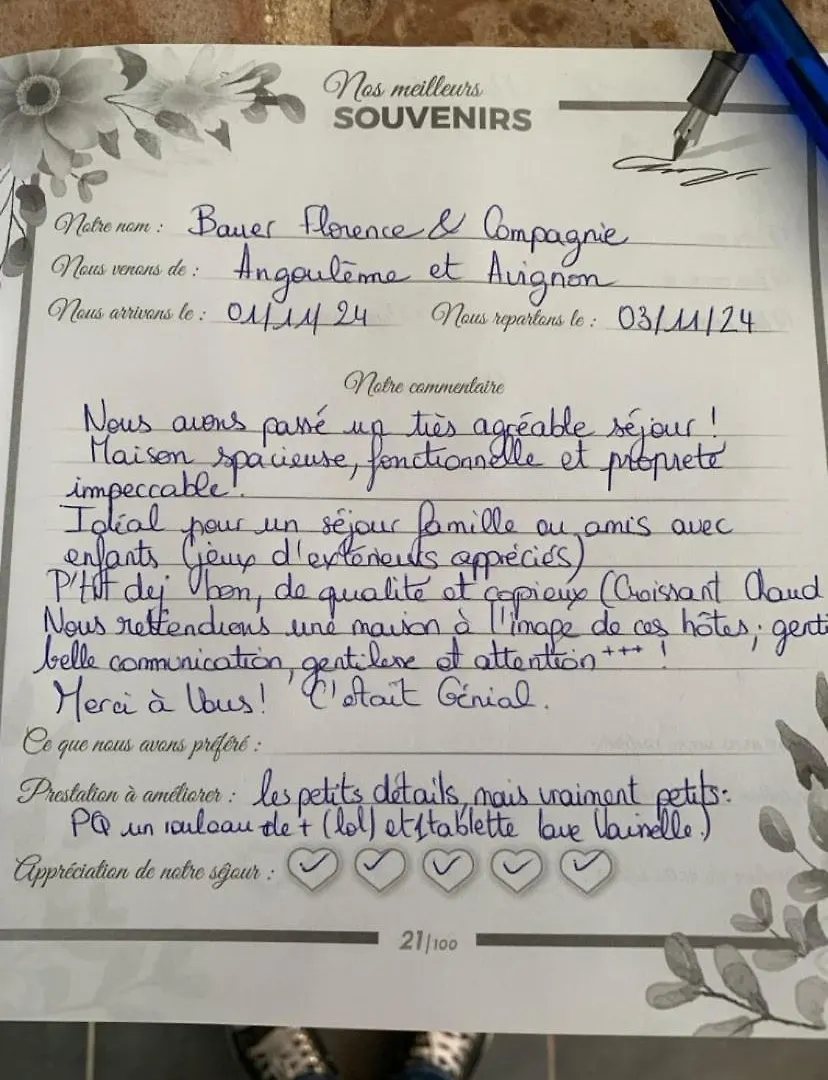 Nos meilleurs
SOUVENIRS
Notre nom : Bauer Florence & Compagnie
Nous venons de : Angoulême et Avignon
Nous arrivons le : 01/11/24 Nous repartons le : 03/11/24
Notre commentaire
Nous avons passé un très agréable séjour !
Maison spacieuse, fonctionnelle et propreté
impeccable !
Idéal pour un séjour famille ou amis avec
enfants (jeux d'extérieurs appréciés)
P'tit dej bon, de qualité et copieux (Croissant Chaud
Nous rettendions une maison à l'image de ces hôtes; genti
belle communication, gentilesse et attention +++ !
Merci à Vous ! C'était Génial.
Ce que nous avons préféré :
Prestation à améliorer : les petits détails, mais vraiment petits:
PQ un rouleau de + (lol) et 1 tablette lave Vaisselle.)
Appréciation de notre séjour : ✓ ✓ ✓ ✓ ✓
21/100